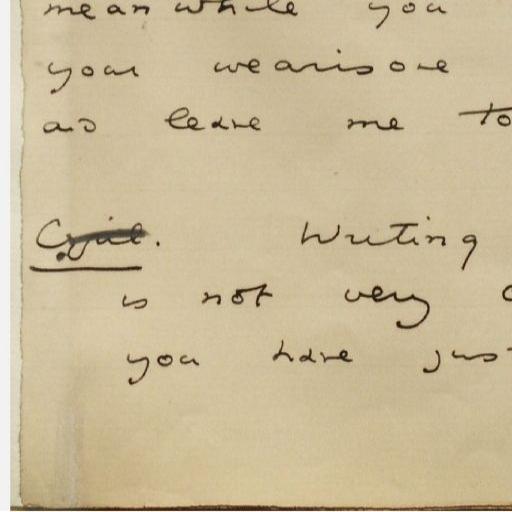 meanwhile you
your wearisome
and leave me to
Cyril. Writing
is not very
you have just